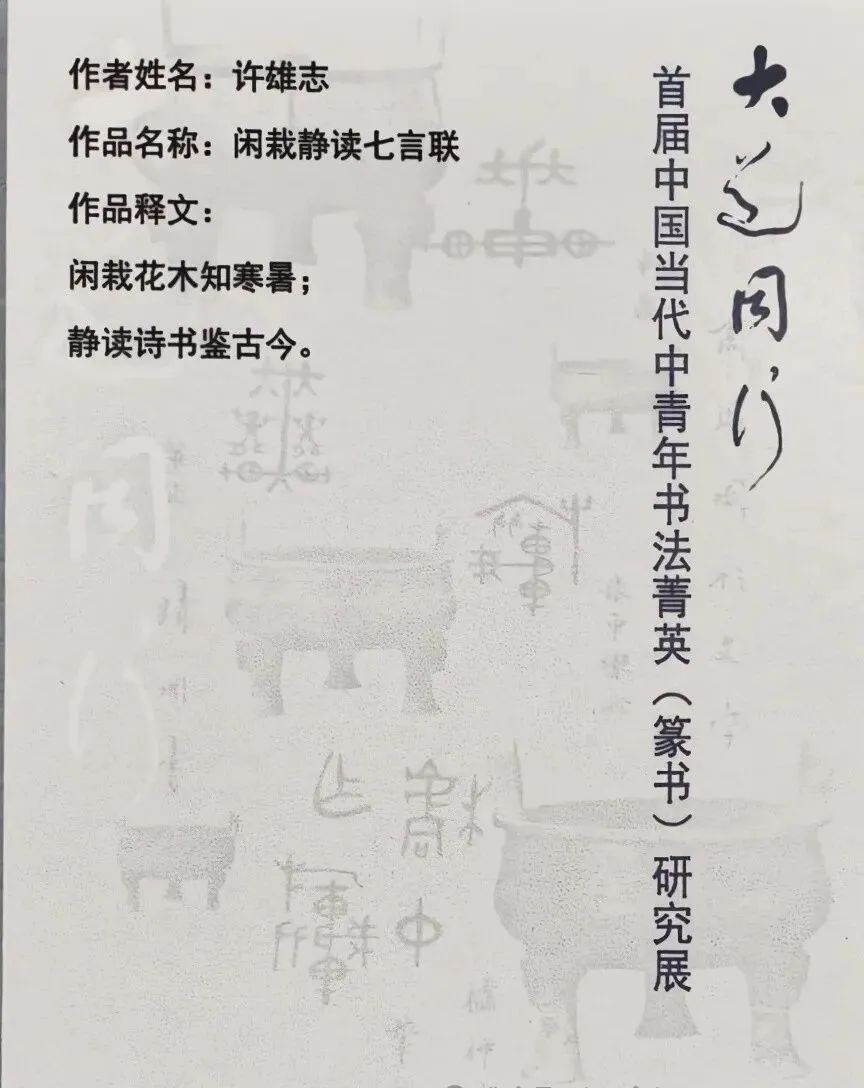 作者姓名：许雄志
作品名称：闲栽静读七言联
作品释文：
闲栽花木知寒暑；
静读诗书鉴古今。
大道同行
首届中国当代中青年书法菁英（篆书）研究展
同行